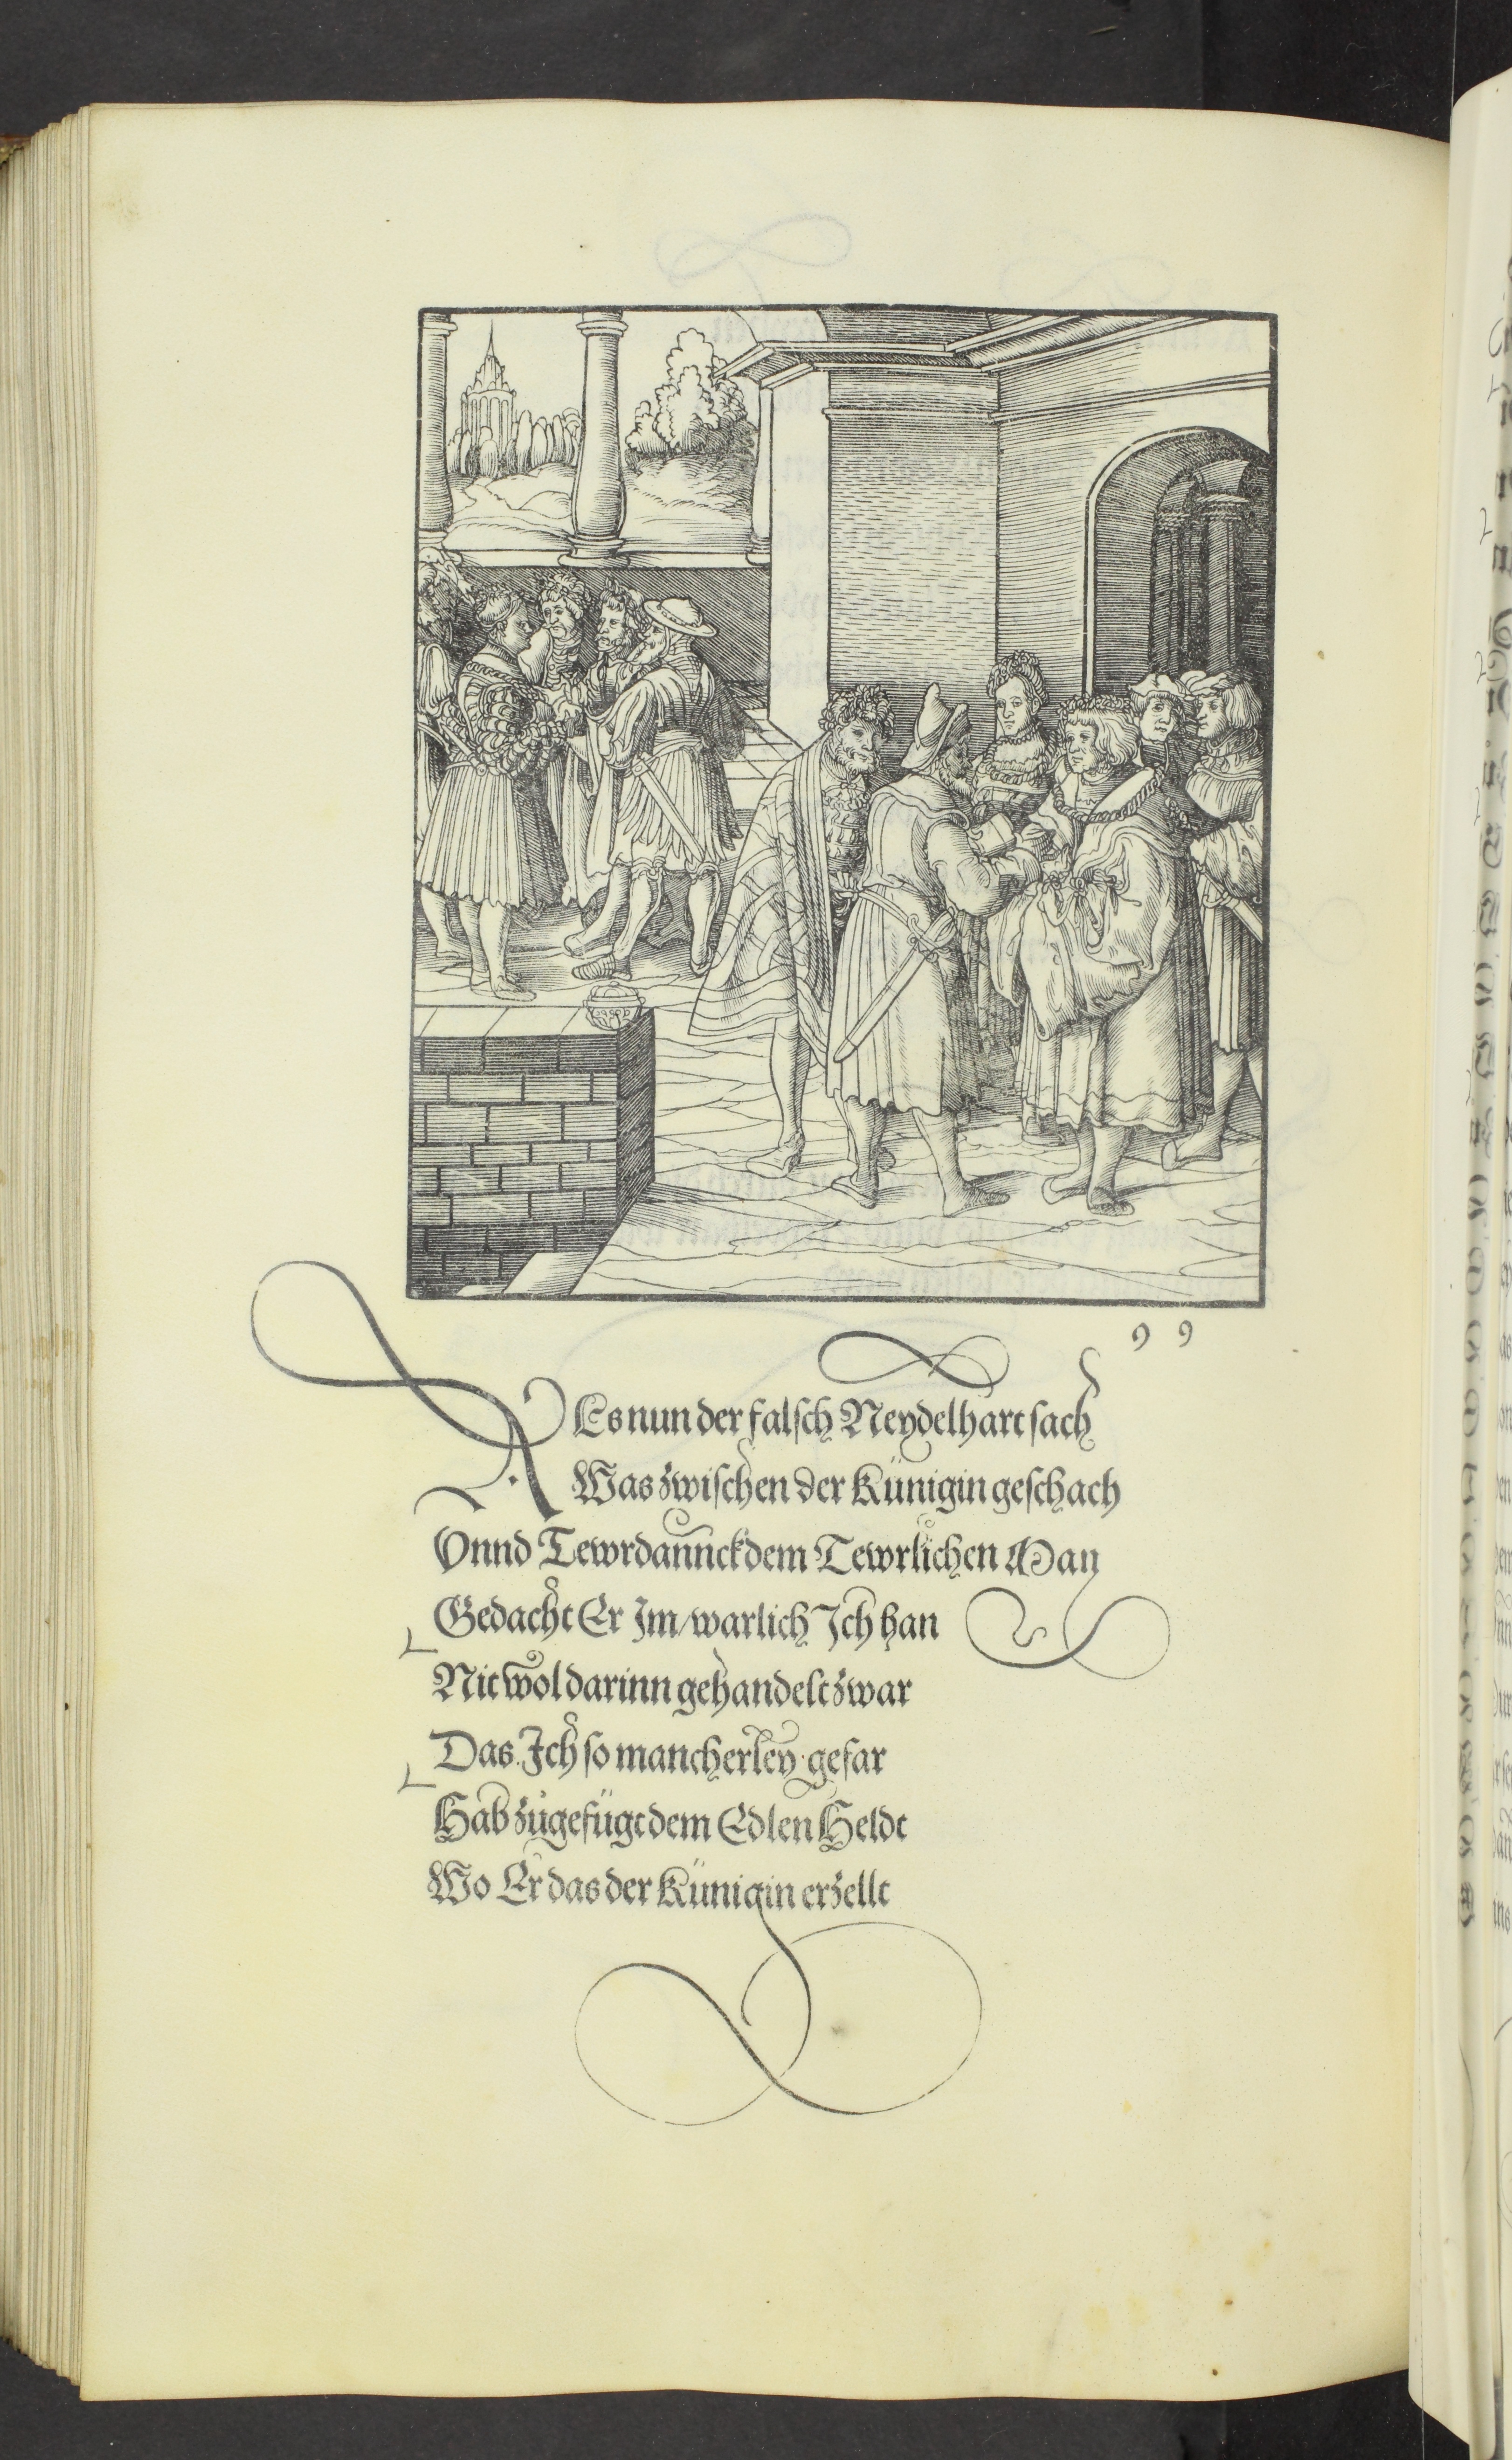 99
AEs nun der falsch Neydelhart sach
Was zwischen der Künigin geschach
Vnnd Tewrdannck dem Tewrlichen Man
Gedacht Er Im/ warlich Ich han
Nit wol darinn gehandelt zwar
Das Ich so mancherley gefar
Hab zůgefügt dem Edlen Heldt
Wo Er das der Künigin erzellt